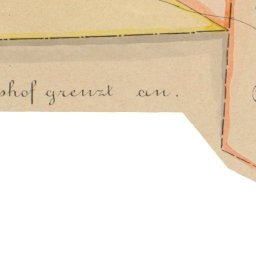 shof grenzt an.